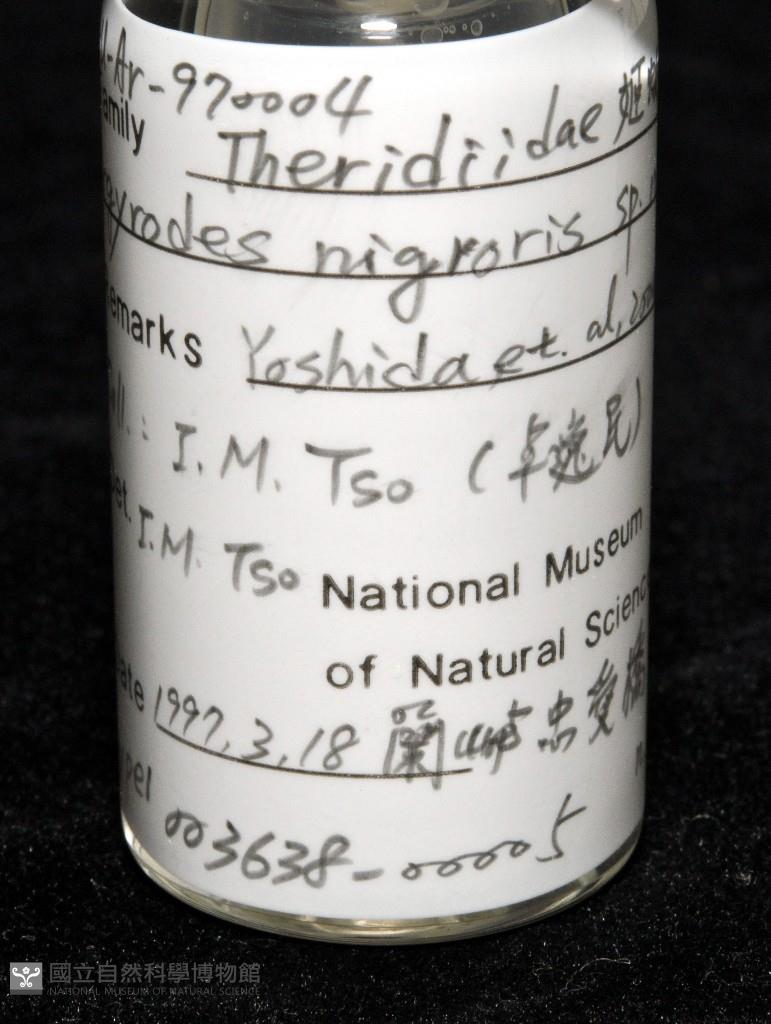 -Ar-970004
Theridiidae 姬
nigroris sp.
Yoshida et. al,
I. M. Tso (卓逸民)
I.M. Tso
National Museum
of Natural Scienc
1997.3.18 蘭嶼忠愛橋
003638-00005
國立自然科學博物館
NATIONAL MUSEUM OF NATURAL SCIENCE